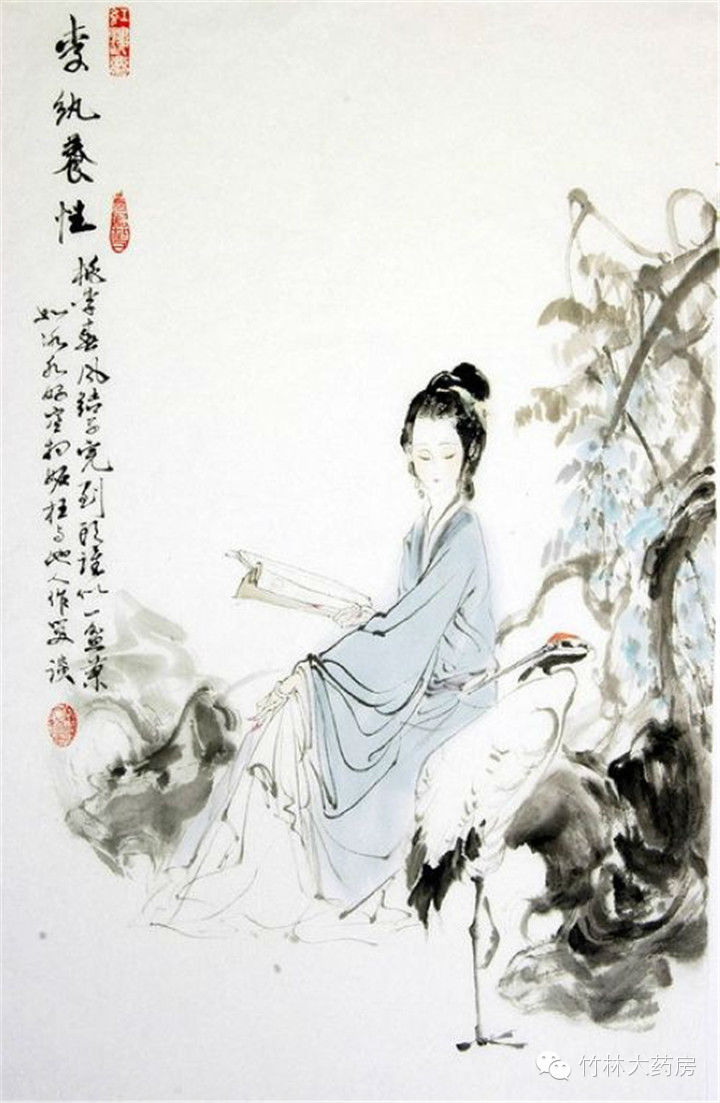 李纨養性
桃李春风结子完到头谁似一盆兰
如冰水好空相妒枉与他人作笑谈
竹林大药房